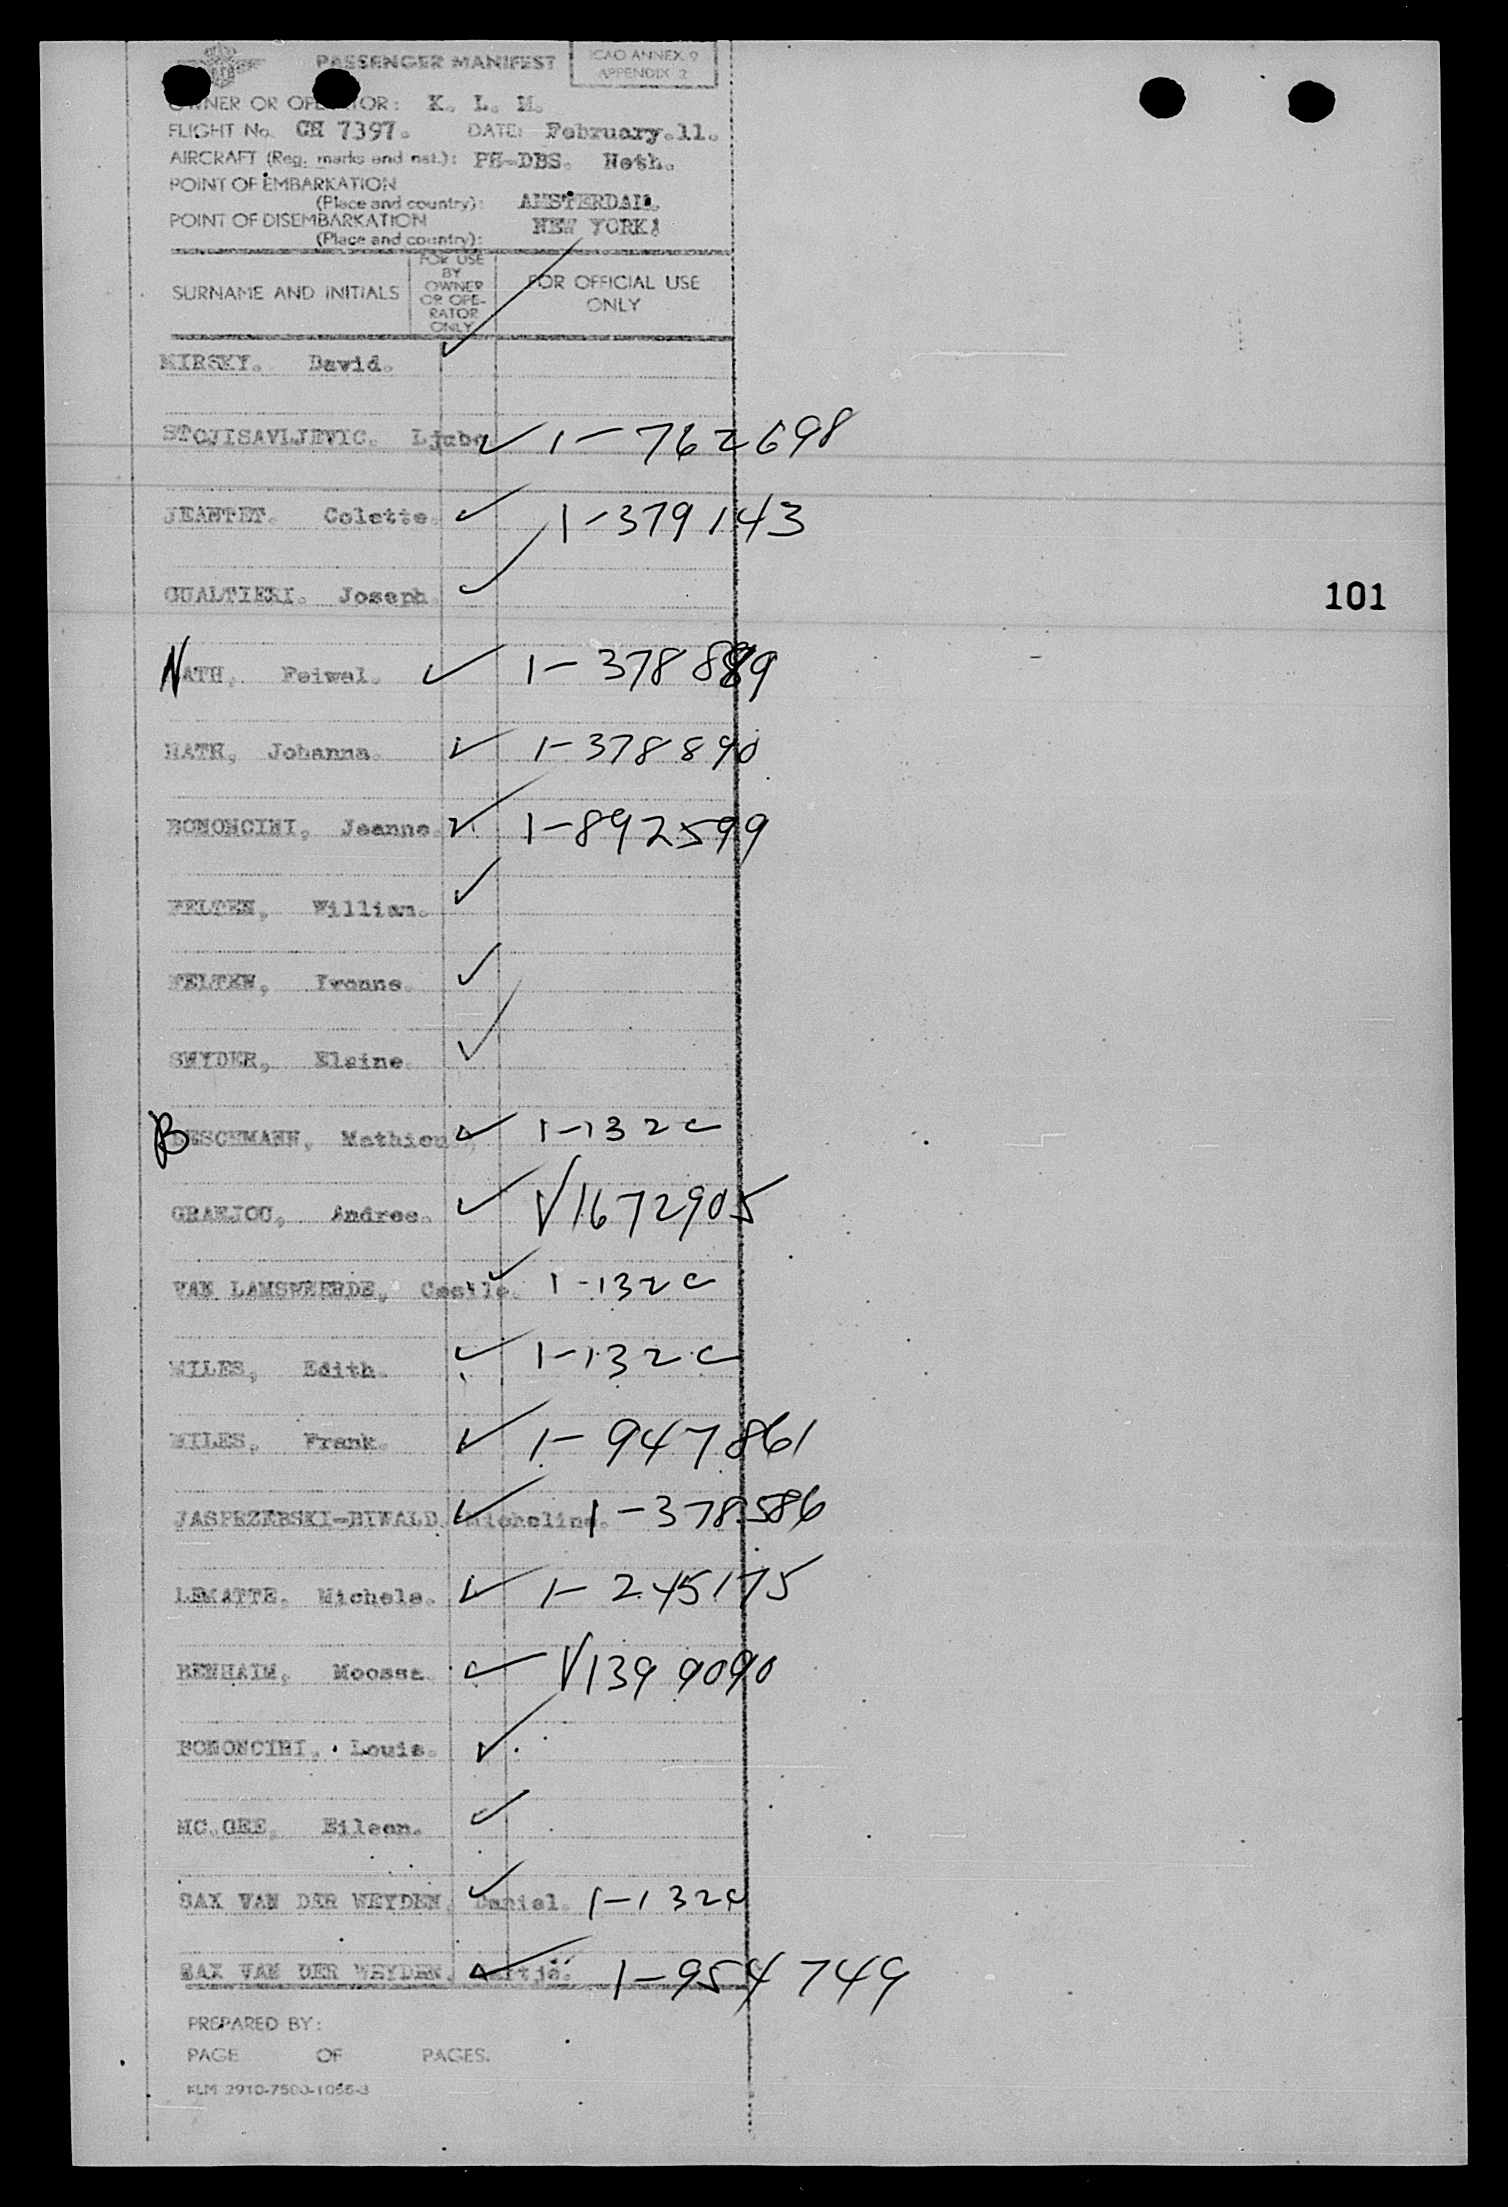 PASSENGER MANIFEST
ICAO ANNEX 9
APPENDIX 2
OWNER OR OPERATOR: K. L. M.
FLIGHT No. 7397. DATE: February.11.
AIRCRAFT (Reg. marks and nat.): PH-DBS. Neth.
POINT OF EMBARKATION
(Place and country): AMSTERDAM.
POINT OF DISEMBARKATION NEW YORK.
(Place and country):
SURNAME AND INITIALS
FOR USE BY OWNER OR OPE-RATOR ONLY
FOR OFFICIAL USE ONLY
MIRSKY. David. ✓
STOJISAVLJEVIC. Ljubo. ✓ 1-762698
JEANTET. Colette. ✓ 1-379143
GUALTIERI. Joseph. ✓
101
NATH, Feiwel. ✓ 1-378889
NATH, Johanna. ✓ 1-378890
BONONCINI, Jeanne. ✓ 1-892599
FELTEN, William. ✓
FELTEN, Yvonne. ✓
SNYDER, Elaine. ✓
BESCHMANN, Mathieu. ✓ 1-132c
GRANJOU, Andree. ✓ V1672905
VAN LAMSWEERDE, Cecile. ✓ 1-132c
MILES, Edith. ✓ 1-132c
MILES, Frank. ✓ 1-947861
Micheline. ✓ 1-378586
LEMATTE, Michele. ✓ 1-245175
BENHAIM, Moossa. ✓ V1399090
BONONCINI, Louis. ✓
MC.GEE, Eileen. ✓
SAX VAN DER WEYDEN, Daniel. ✓ 1-132c
SAX VAN DER WEYDEN, ✓ 1-954749
PREPARED BY:
PAGE OF PAGES.
KLM 2910-7500-1055-3